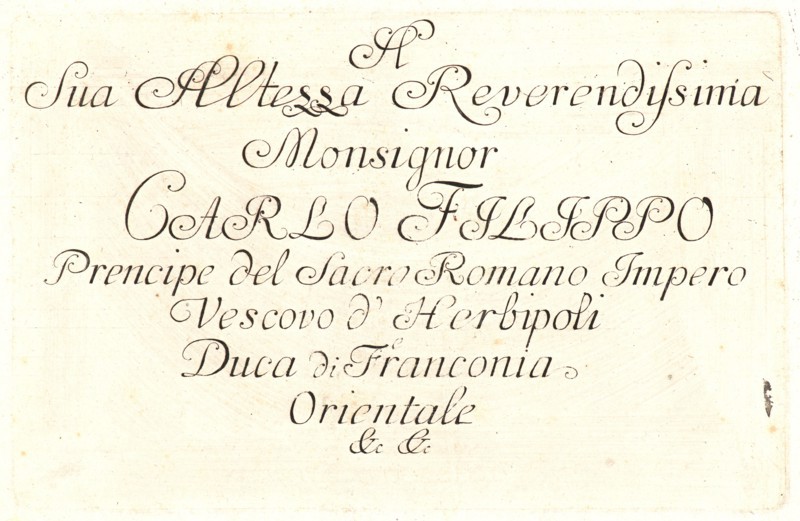 A
Sua Altezza Reverendissima
Monsignor
CARLO FILIPPO
Prencipe del Sacro Romano Impero
Vescovo d' Herbipoli
Duca di Franconia
Orientale
&c &c